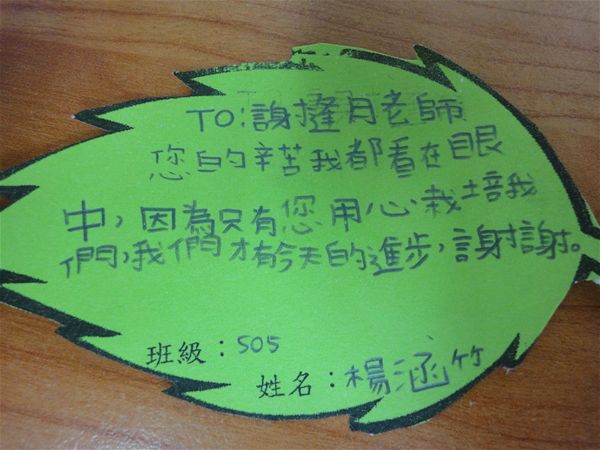 TO:謝撻月老師
您的辛苦我都看在眼
中,因為只有您用心栽培我
們,我們才有今天的進步,謝謝。
班級:505
姓名:楊涵竹